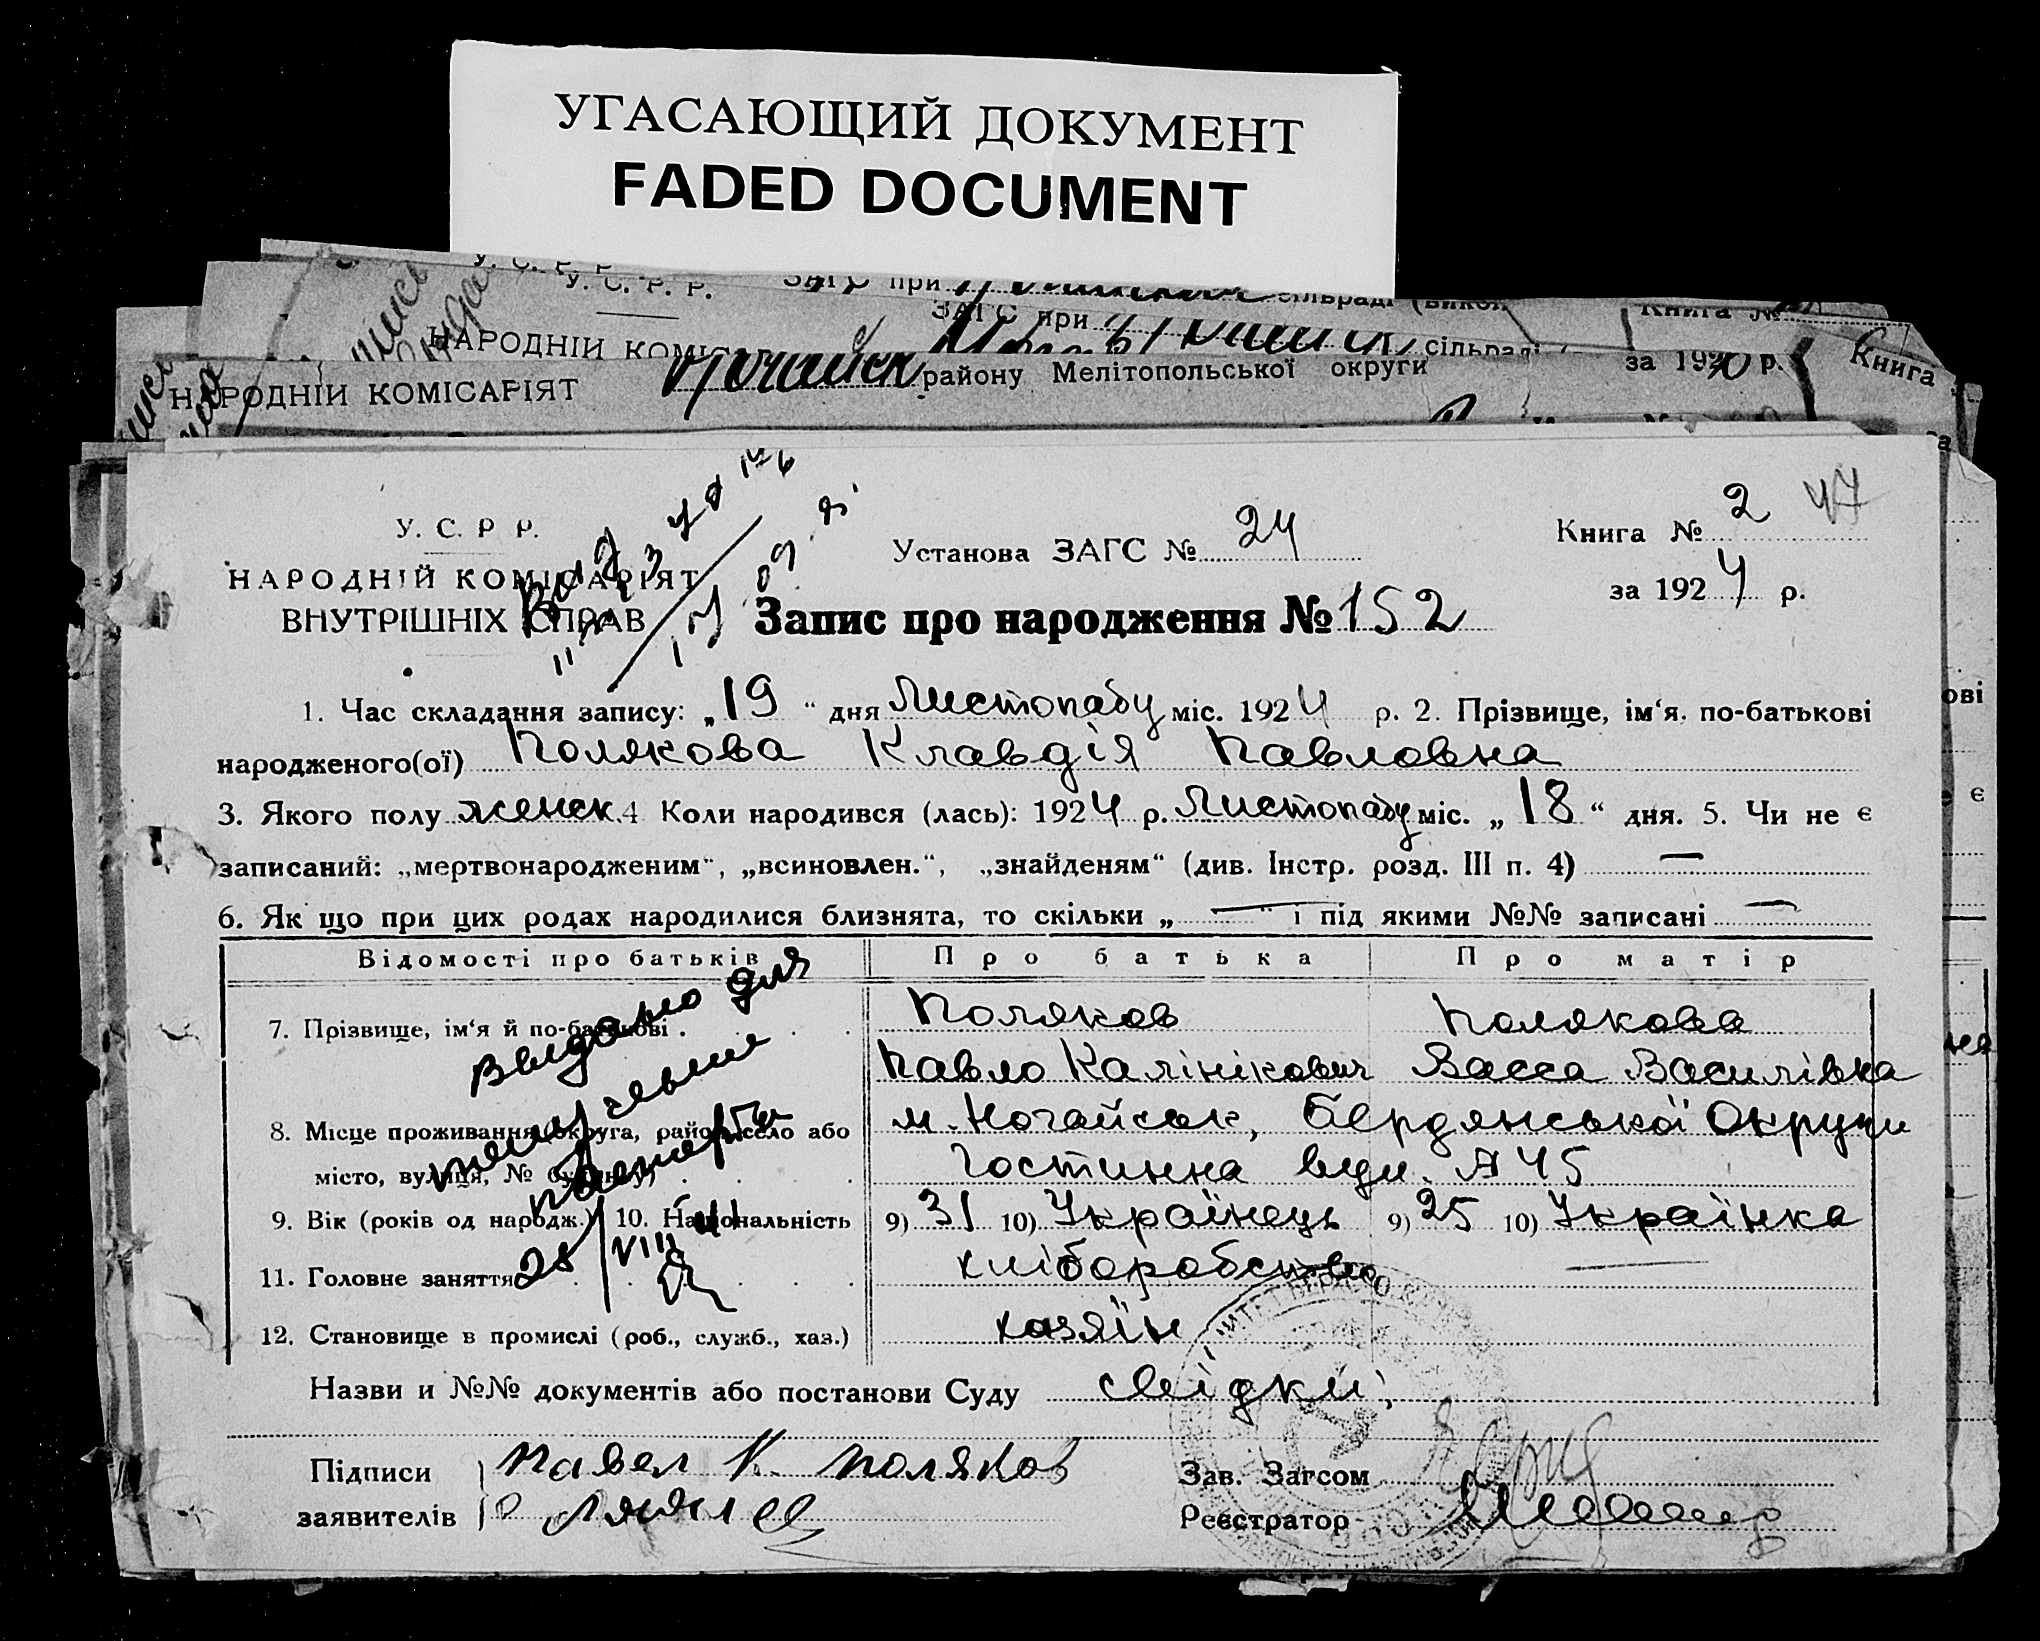 УГАСАЮЩИЙ ДОКУМЕНТ
FADED DOCUMENT
У. С. Р. Р.
ЗАГС при
Книга №
НАРОДНІЙ
ЗАГС при
сільраді
за 1930 р.
Книга
НАРОДНІЙ КОМІСАРІЯТ
району Мелітопольської округи
У. С. Р. Р.
НАРОДНІЙ КОМІСАРІЯТ
ВНУТРІШНІХ СПРАВ
Установа ЗАГС № 24
Книга № 2
47
за 1924 р.
Запис про народження № 152
1. Час складання запису: „19“ дня Листопаду міс. 1924 р. 2. Прізвище, ім‘я, по-батькові
народженого(ої) Полякова Клавдія Павловна
3. Якого полу женск. 4 Коли народився (лась): 1924 р. Листопаду міс. „18“ дня. 5. Чи не є
записаний: „мертвонародженим“, „всиновлен.“, „знайденям“ (див. Інстр. розд. III п. 4) —
6. Як що при цих родах народилися близнята, то скільки „—“ і під якими №№ записані —
Відомості про батьків
Про батька
Про матір
7. Прізвище, ім‘я й по-батькові
Поляков
Полякова
Павло Калінікович
Васса Василівна
8. Місце проживання (округа, район, село або
м. Ногайськ, Бердянської Округи
місто, вулиця, № будинку)
Гостинна вул. № 45
9. Вік (років од народж.) 10. Національність
9) 31 10) Українець
9) 25 10) Українка
11. Головне заняття
хліборобство
—
12. Становище в промислі (роб., служб., хаз.)
хазяїн
Видано для
получения
паспорта
28/VIII 41
Назви и №№ документів або постанови Суду свідки;
Підписи
заявителів
Павел К. Поляков
Зав. Загсом
Реєстратор